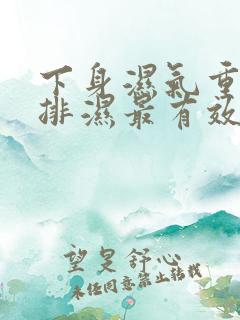 下身濕氣重
排濕最有效
望旻舒心
未经同意禁止转载